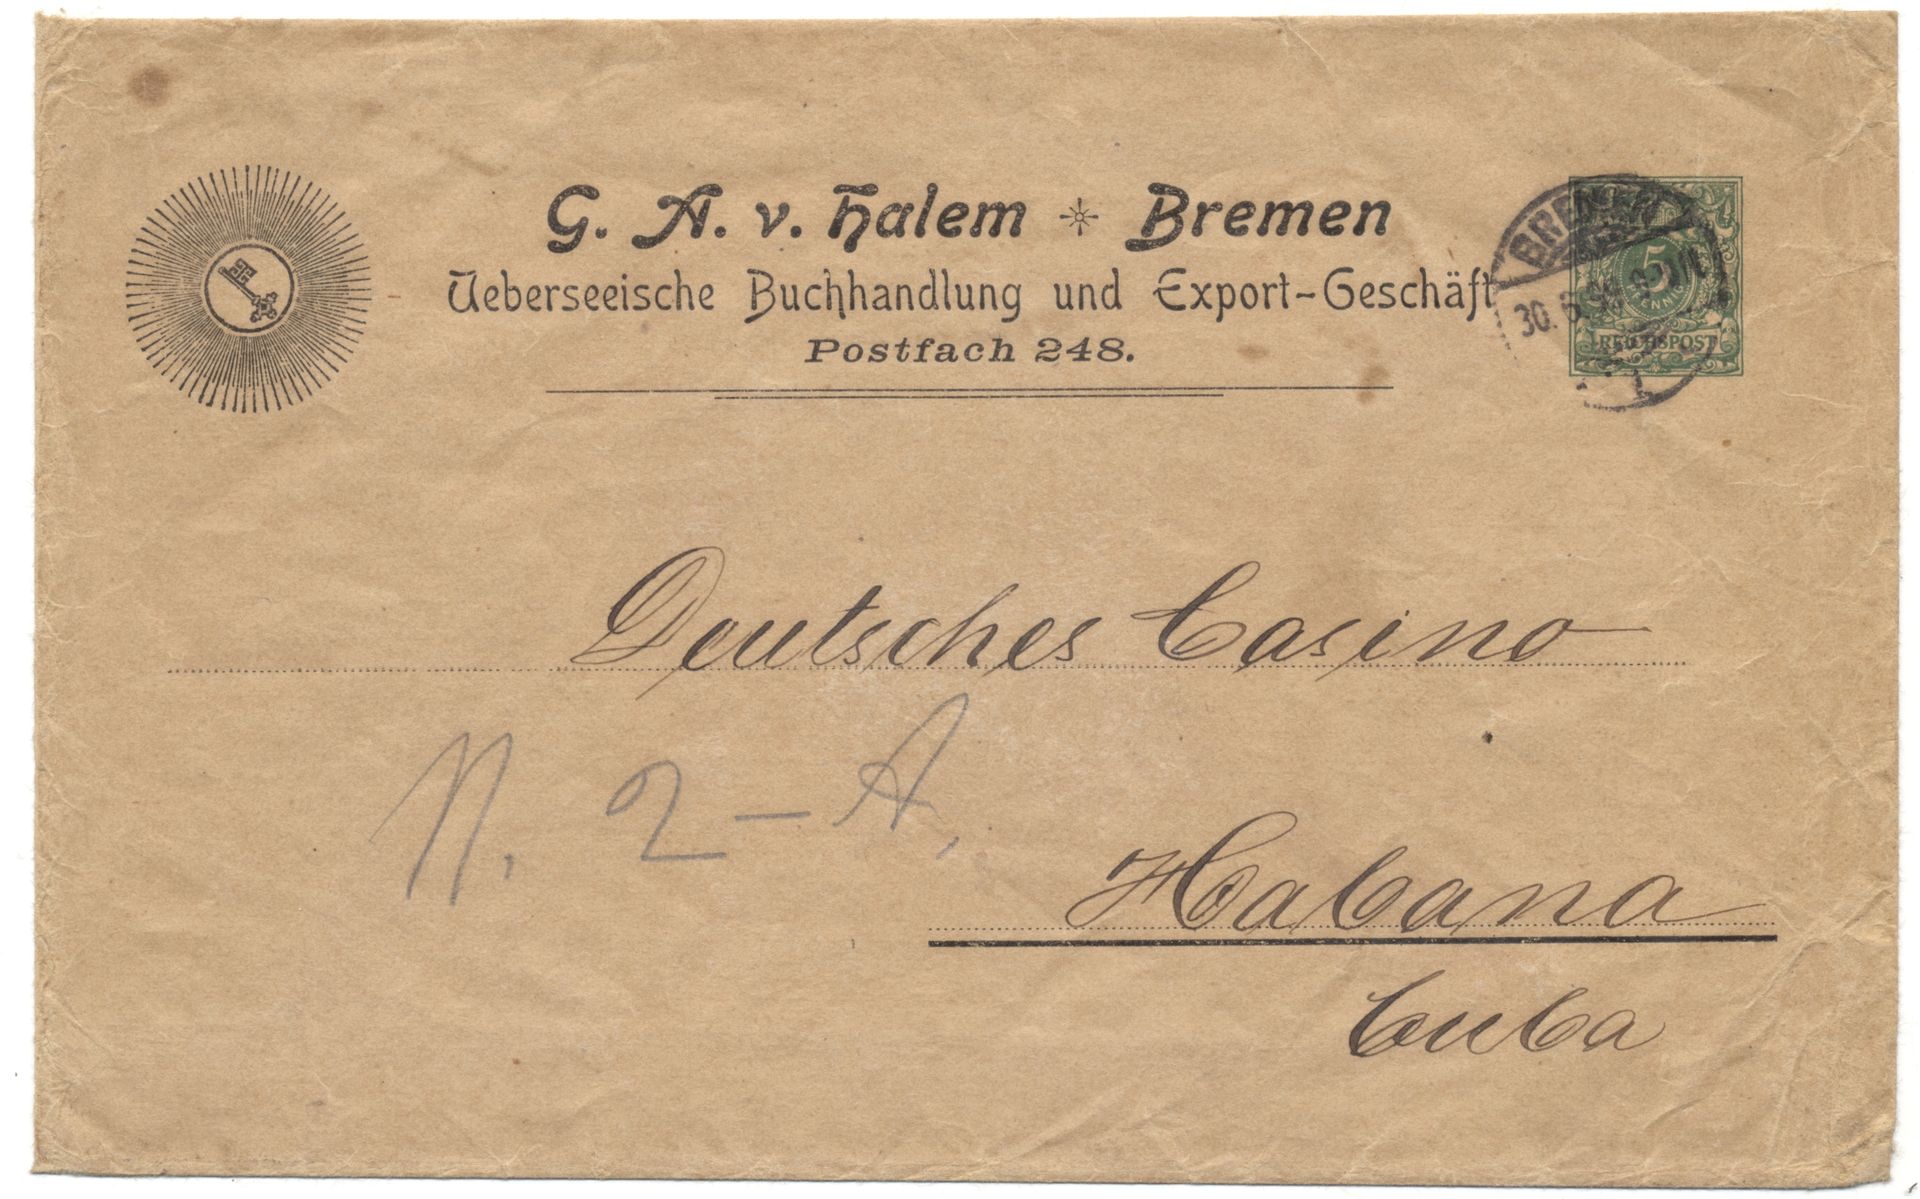 G. A. v. Halem * Bremen
Ueberseeische Buchhandlung und Export-Geschäft
Postfach 248.
BREMEN
5
PFENNIG
REICHSPOST
1
Deutsches Casino
N. 2 - A.
Habana
Cuba